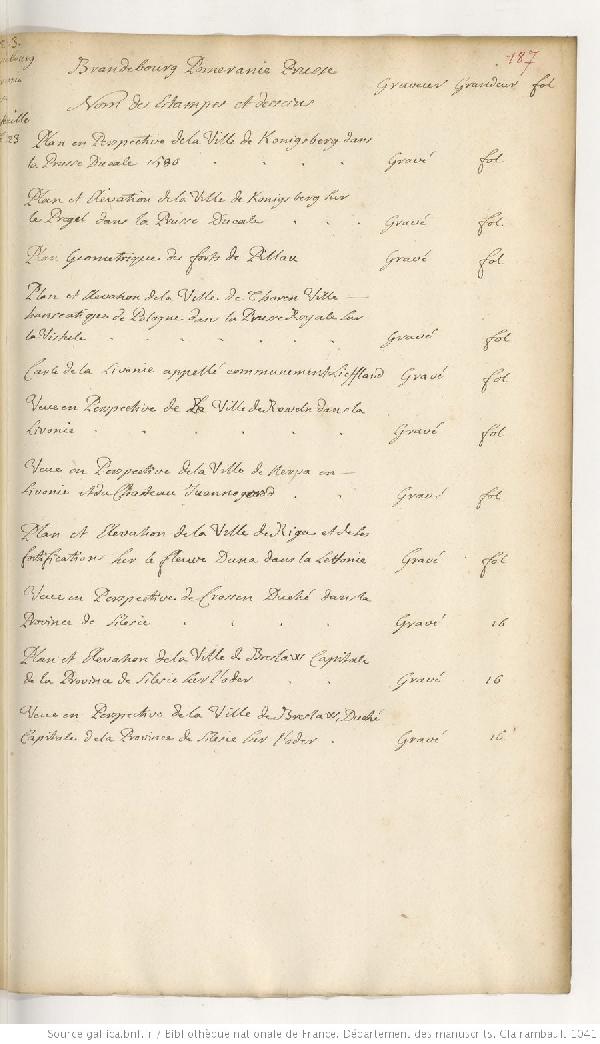 187
Brandebourg Pomeranie Prusse
Graveur Grandeur fol
Nom des Estampes et desseins
Plan en Perspective de la Ville de Konigsberg dans
la Prusse Ducale . . . . Gravé fol.
Plan et Elevation de la Ville de Konigsberg sur
le Pregel dans la Prusse Ducale . . . Gravé fol.
Plan Geometrique des forts de Pillau Gravé fol
Plan et Elevation de la Ville de Thoren Ville —
hanseatique de Pologne dans la Prusse Royale sur
la Vistule . . . . . . . Gravé fol
Carte de la Livonie appellé communement Liefland Gravé fol
Veue en Perspective de la Ville de Reveln dans la
Livonie . . . . . . Gravé fol
Veue en Perspective de la Ville de en —
Livonie et du Chasteau . . Gravé fol
Plan et Elevation de la Ville de Riga et de ses
fortifications sur le fleuve Duna dans la Lettonie Gravé fol
Veue en Perspective de Crossen Duché dans la
Province de Silesie . . . . Gravé 16
Plan et Elevation de la Ville de Breslaw Capitale
de la Province de Silesie sur l'oder . . Gravé 16
Veue en Perspective de la Ville de Breslaw, Duché
Capitale de la Province de Silesie sur l'oder . Gravé 16
Source gallica.bnf.fr / Bibliothèque nationale de France. Département des manuscrits. Clairambault 1041